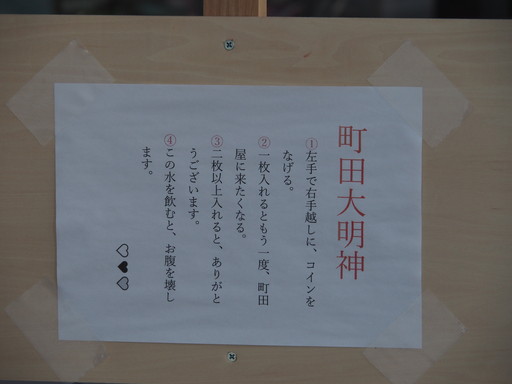 町田大明神
①左手で右手越しに、コインを
なげる。
②一枚入れるともう一度、町田
屋に来たくなる。
③二枚以上入れると、ありがと
うございます。
④この水を飲むと、お腹を壊し
ます。
♡♥♡